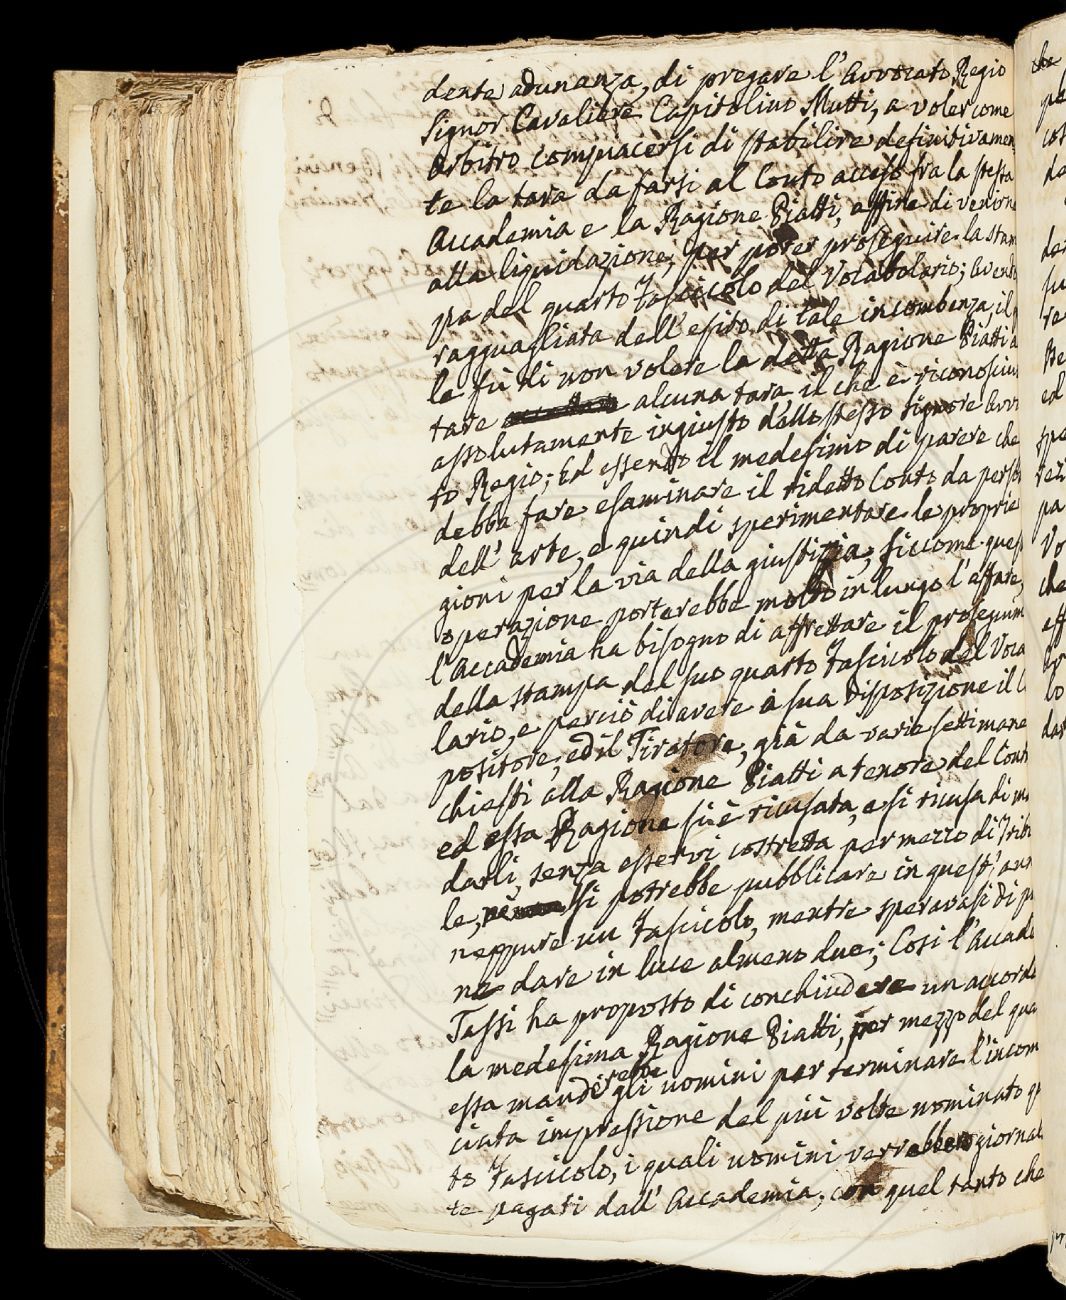 dente adunanza, di pregare l'Avvocato Regio
Signor Cavaliere Capitolino Mutti, a voler come
Arbitro compiacersi di stabilire definitivamen
te la tara da farsi al Conto acceso fra la stessa
Accademia e la Ragione Piatti, affine di venirne
alla liquidazione, per poter proseguire la stam
pa del quarto Fascicolo del Vocabolario; avendo
ragguagliata dell'esito di tale incombenza, il
le fù di non volere la detta Ragione Piatti
tare alcuna tara il che è riconosciu
assolutamente ingiusto dallo stesso Signore Avv
to Regio; Ed essendo il medesimo di parere che
debba fare esaminare il ridetto Conto da
dell'arte, e quindi sperimentare le proprie
gioni per la via della giustizia; siccome ques
operazione porterebbe molto in lungo l'affare,
l'Accademia ha bisogno di affrettare il proseguim
della stampa del suo quarto Fascicolo del Voca
lario, e perciò di avere a sua disposizione il
positore, ed il Tiratore, già da varie settimane
chiesti alla Ragione Piatti a tenore del Cont
ed essa Ragione si è ricusata, e si ricusa di
darli, senza esservi costretta per mezzo di Trib
le, si potrebbe pubblicare in quest'ann
neppure un Fascicolo, mentre speravasi di
ne dare in luce almeno due; Così l'Accad
Tassi ha proposto di conchiudere un accordo
la medesima Ragione Piatti, per mezzo del qua
essa manderebbe gli uomini per terminare l'incom
ciata impressione del più volte nominato
to Fascicolo, i quali uomini verrebbero giornal
te pagati dall'Accademia, con quel tanto che